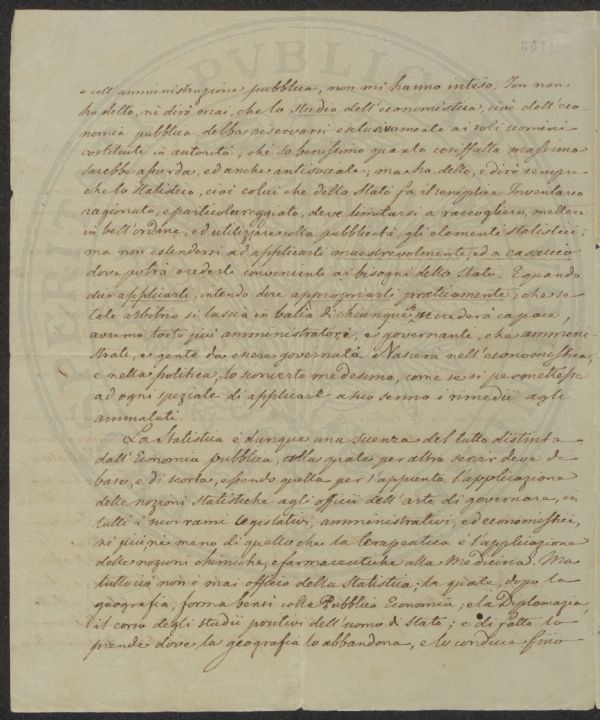 e coll'amministrazione pubblica, non mi hanno inteso. Io non
ho detto, nè dirò mai, che lo studio dell'economistica, cioè dell'eco-
nomia pubblica, debba riservarsi esclusivamente ai soli uomini
costituiti in autorità; chè so benissimo quanto cosiffatta massima
sarebbe assurda, ed anche antisociale; ma ho detto, e dirò sempre
che lo statistico, cioè colui che dello Stato fa il semplice Inventario
ragionato, e particolareggiato, deve limitarsi a raccogliere, mettere
in bell'ordine, ed utilizzare colla pubblicità, gli elementi statistici;
ma non estendersi ad applicarli maestrevolmente, ed a casaccio
dove potrà crederlo conveniente ai bisogni dello Stato. E quando
dico applicarli, intendo dire appropriarli praticamente; che se
tale arbitrio si lascia in balìa di chiunque se ne crederà capace,
avremo tosto più amministratori, e governanti, che ammini-
strati, e gente da essere governata. Nascerà nell'economistica,
e nella politica, lo sconcerto medesimo, come se si permettesse
ad ogni speziale di applicare a suo senno i rimedii agli
ammalati.
La Statistica è dunque una scienza del tutto distinta
dall'Economia pubblica, alla quale per altro servir deve di
base, e di scorta, essendo quella per l'appunto l'applicazione
delle nozioni statistiche agli officii dell'arte di governare, in
tutti i suoi rami legislativi, amministrativi, ed economistici,
nè più nè meno di quello che la terapeutica è l'applicazione
delle nozioni chimiche, e farmaceutiche alla Medicina. Ma
tutto ciò non è mai officio della statistica; la quale, dopo la
geografia, forma bensì colla Pubblica Economia, e la Diplomazia,
il corso degli studii positivi dell'uomo di Stato; e di fatto lo
prende dove la geografia lo abbandona, e lo conduce fino